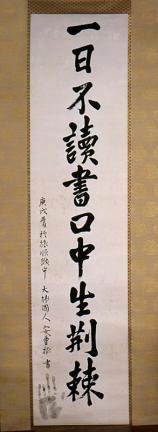 一日不讀書口中生荊棘
庚戌三月於旅順獄中 大韓國人 安重根 書